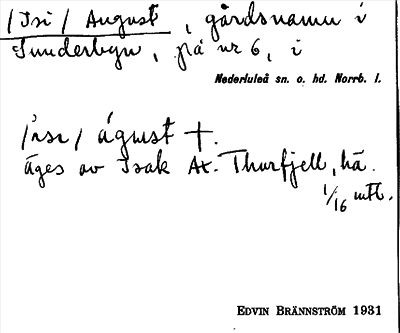 /Isi/ August, gårdsnamn i
Sunderbyn, på nr 6, i
Nederluleå sn. o. hd. Norrb. l.
/ɩsɩ/ águst †.
Äges av Isak Ax. Thurfjell, hä.
1/16 mtl.
EDVIN BRÄNNSTRÖM 1931